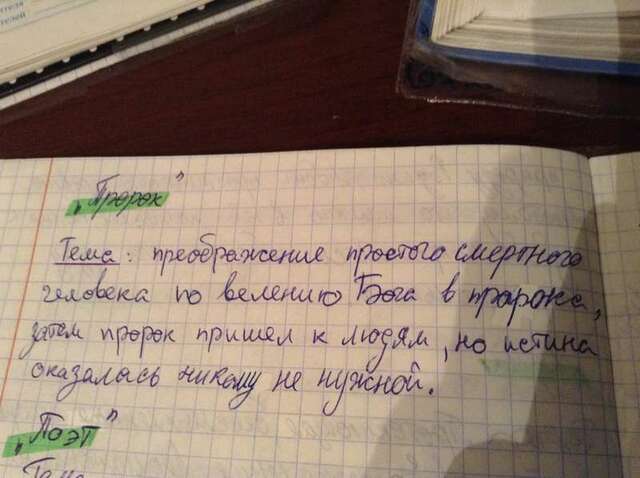 ителя
телей
„Пророк"
Тема: преображение простого смертного
человека по велению Бога в пророка,
затем пророк пришел к людям, но истина
оказалась никому не нужной.
„Поэт"
Тема